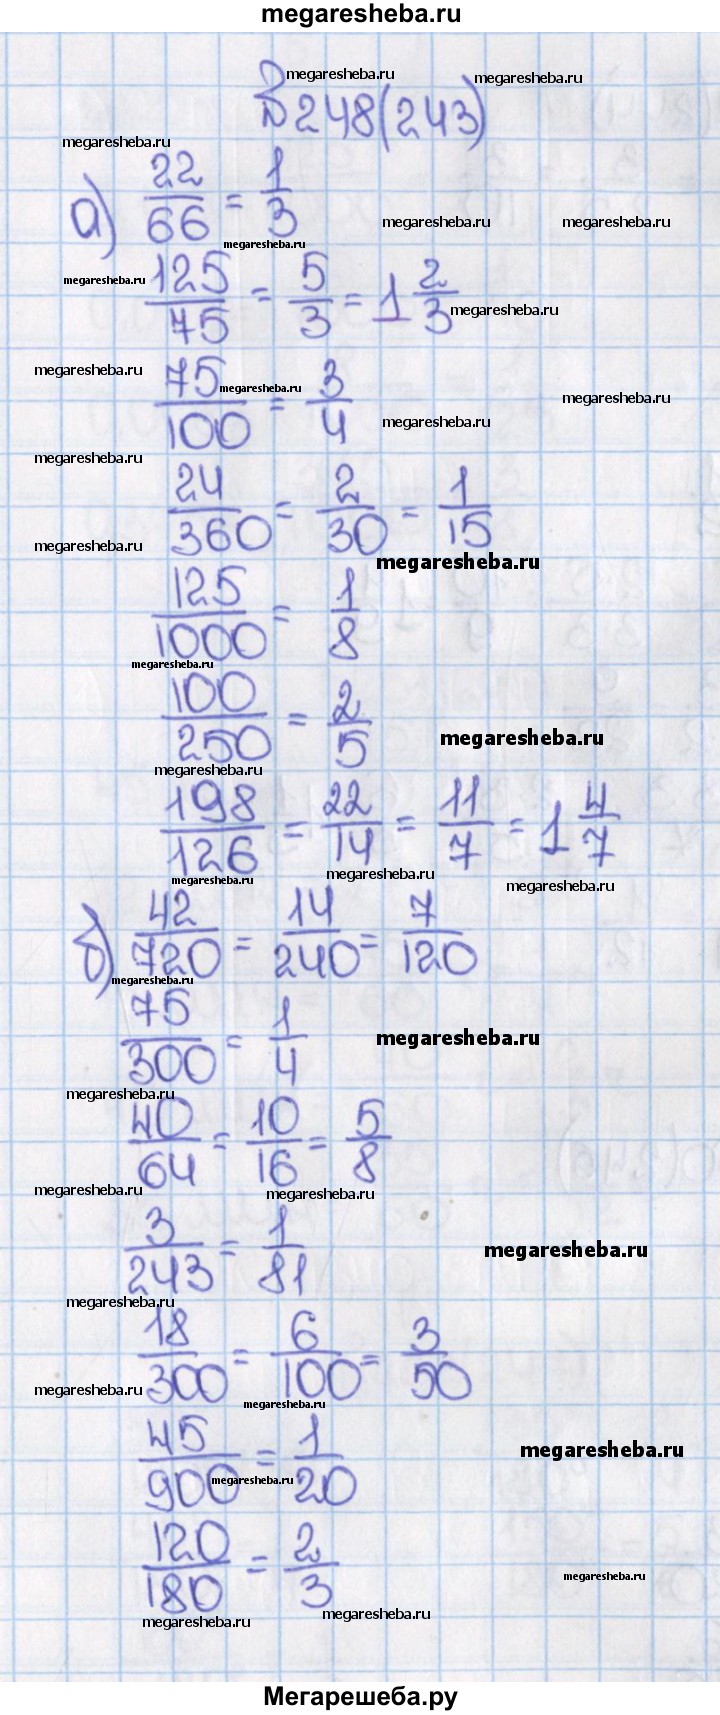 megaresheba.ru
megaresheba.ru megaresheba.ru
№248(243)
megaresheba.ru
а) 22/66 = 1/3
megaresheba.ru megaresheba.ru
megaresheba.ru
megaresheba.ru
125/75 = 5/3 = 1 2/3
megaresheba.ru
megaresheba.ru
75/100 = 3/4
megaresheba.ru megaresheba.ru
megaresheba.ru
megaresheba.ru
24/360 = 2/30 = 1/15
megaresheba.ru
megaresheba.ru
125/1000 = 1/8
megaresheba.ru
100/250 = 2/5
megaresheba.ru
megaresheba.ru
198/126 = 22/14 = 11/7 = 1 4/7
megaresheba.ru
megaresheba.ru megaresheba.ru
б) 42/720 = 14/240 = 7/120
megaresheba.ru
75/300 = 1/4
megaresheba.ru
megaresheba.ru
40/64 = 10/16 = 5/8
megaresheba.ru megaresheba.ru
3/243 = 1/81
megaresheba.ru
megaresheba.ru
18/300 = 6/100 = 3/50
megaresheba.ru
megaresheba.ru
45/900 = 1/20
megaresheba.ru
megaresheba.ru
120/180 = 2/3
megaresheba.ru
megaresheba.ru megaresheba.ru
Мегарешеба.ру